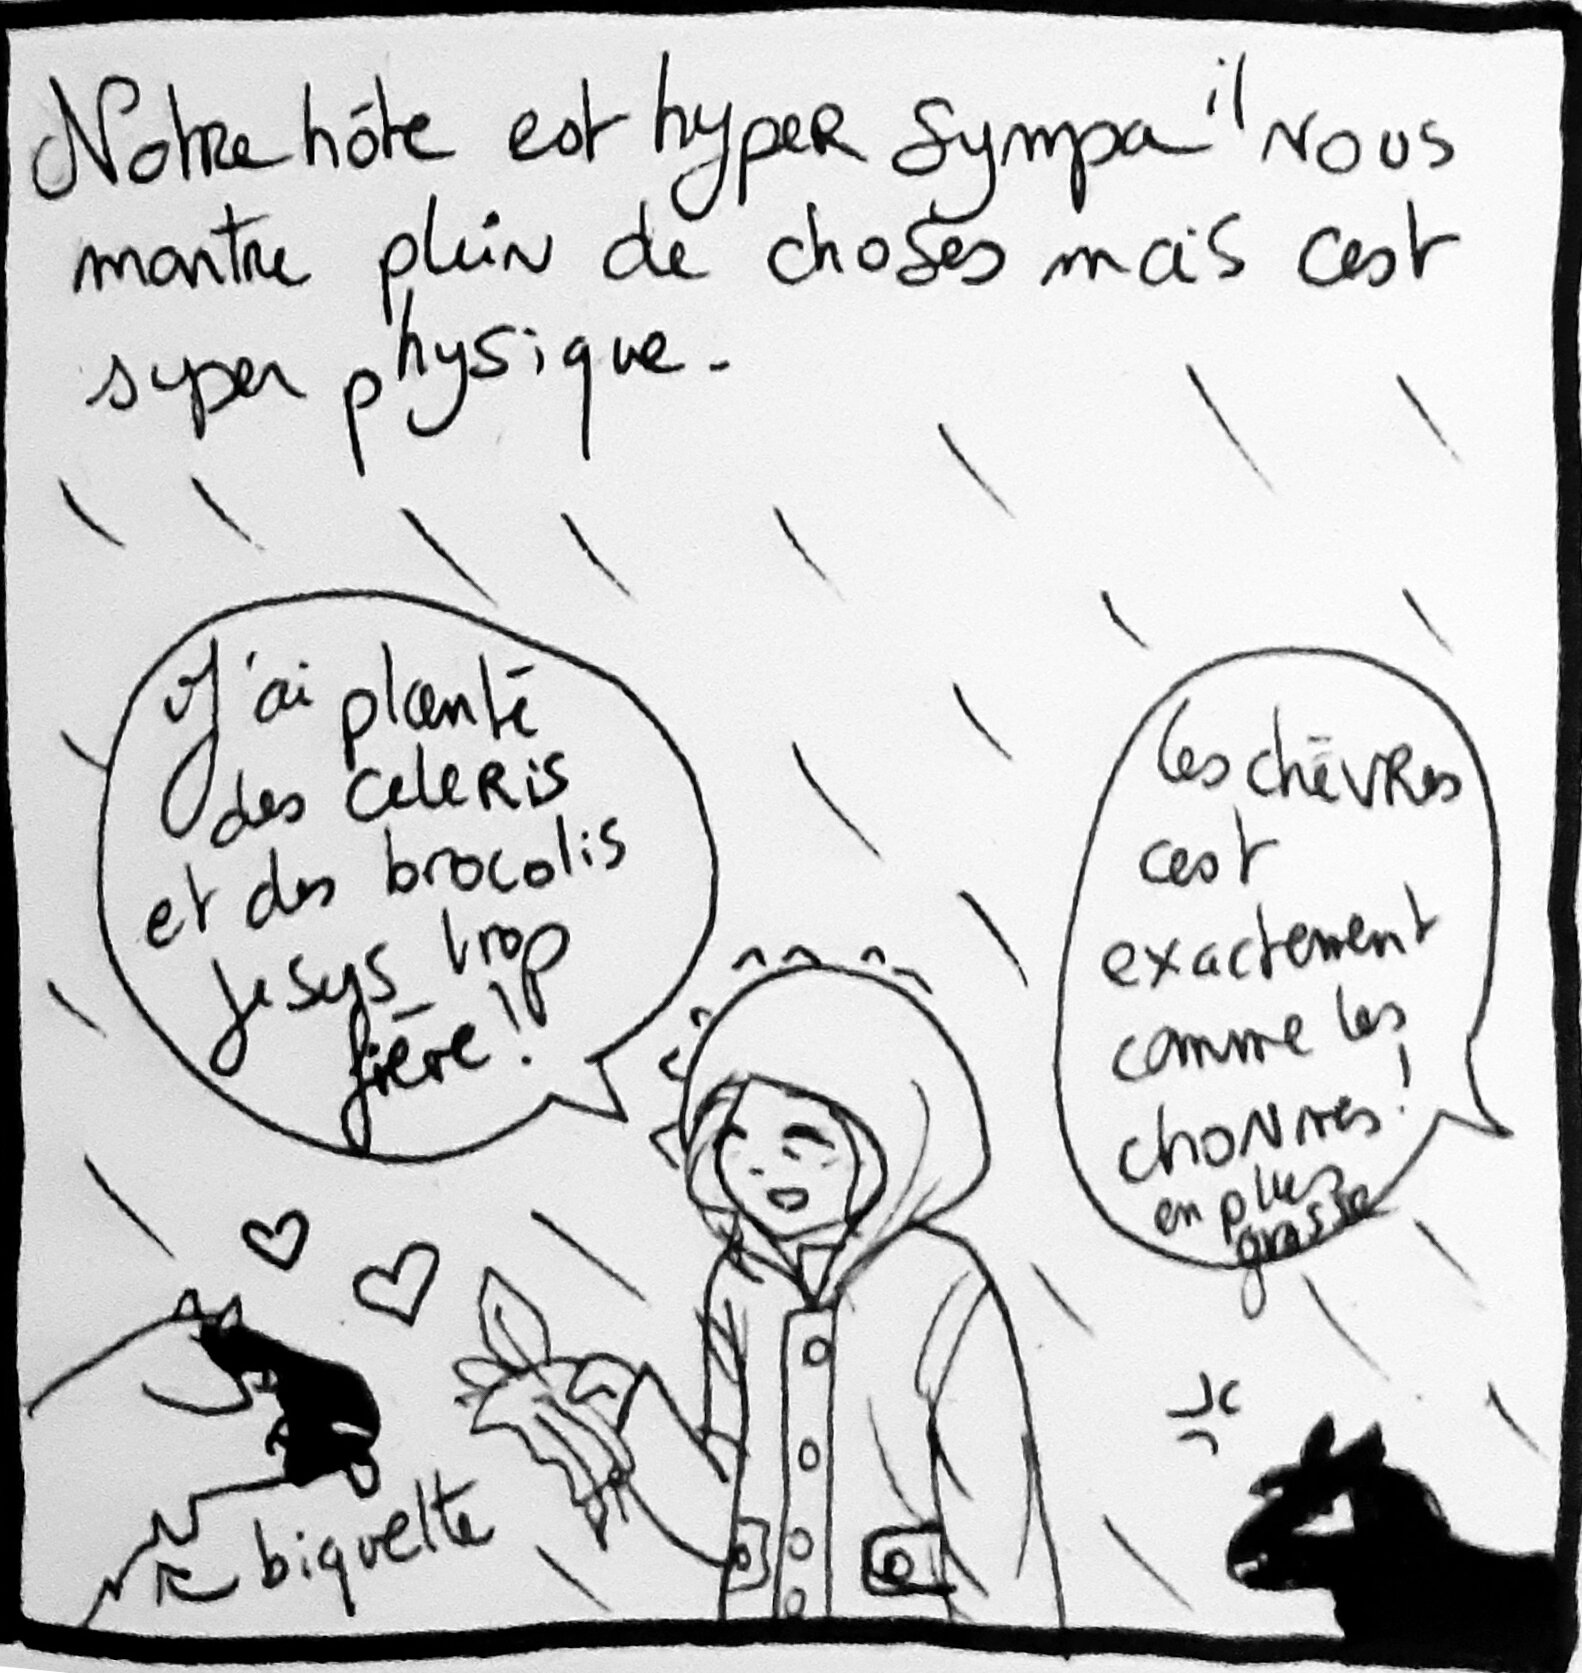 Notre hôte est hyper sympa il nous
montre plein de choses mais c'est
super physique.
J'ai planté
des céleris
et des brocolis
je suis trop
fière !
les chèvres
c'est
exactement
comme les
chonnes !
en plus
grosse
biquette